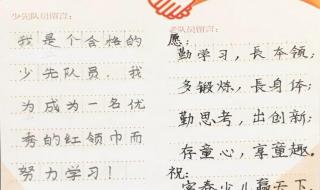 少先队员留言:
我是个合格的
少先队员. 我
为成为一名优
秀的红领巾而
努力学习!
老队员留言:
愿:
勤学习，長本領；
多鍛炼，長身体；
勤思考，出创新；
存童心，享童趣。
祝:
富春少儿赢天下